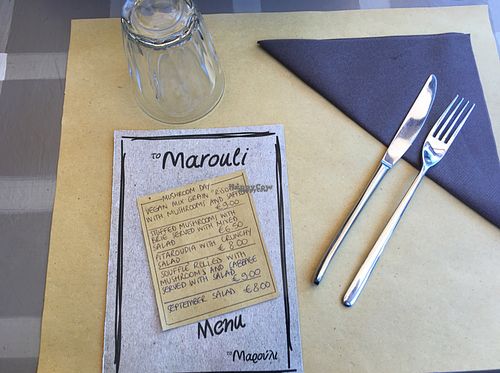 το Marouli
MUSHROOM DAY
VEGAN MIX GRAIN
WITH MUSHROOMS AND
€9.00
STUFFED MUSHROOM WITH
BRIE SERVED WITH MIXED
SALAD €6.50
PITAROUDIA WITH CRUNCHY
SALAD €8.00
SOUFFLE FILLED WITH
MUSHROOMS AND CABBAGE
SERVED WITH SALAD
€9.00
SEPTEMBER SALAD €8.00
Menu
το Μαρούλι
HAPPYCOW